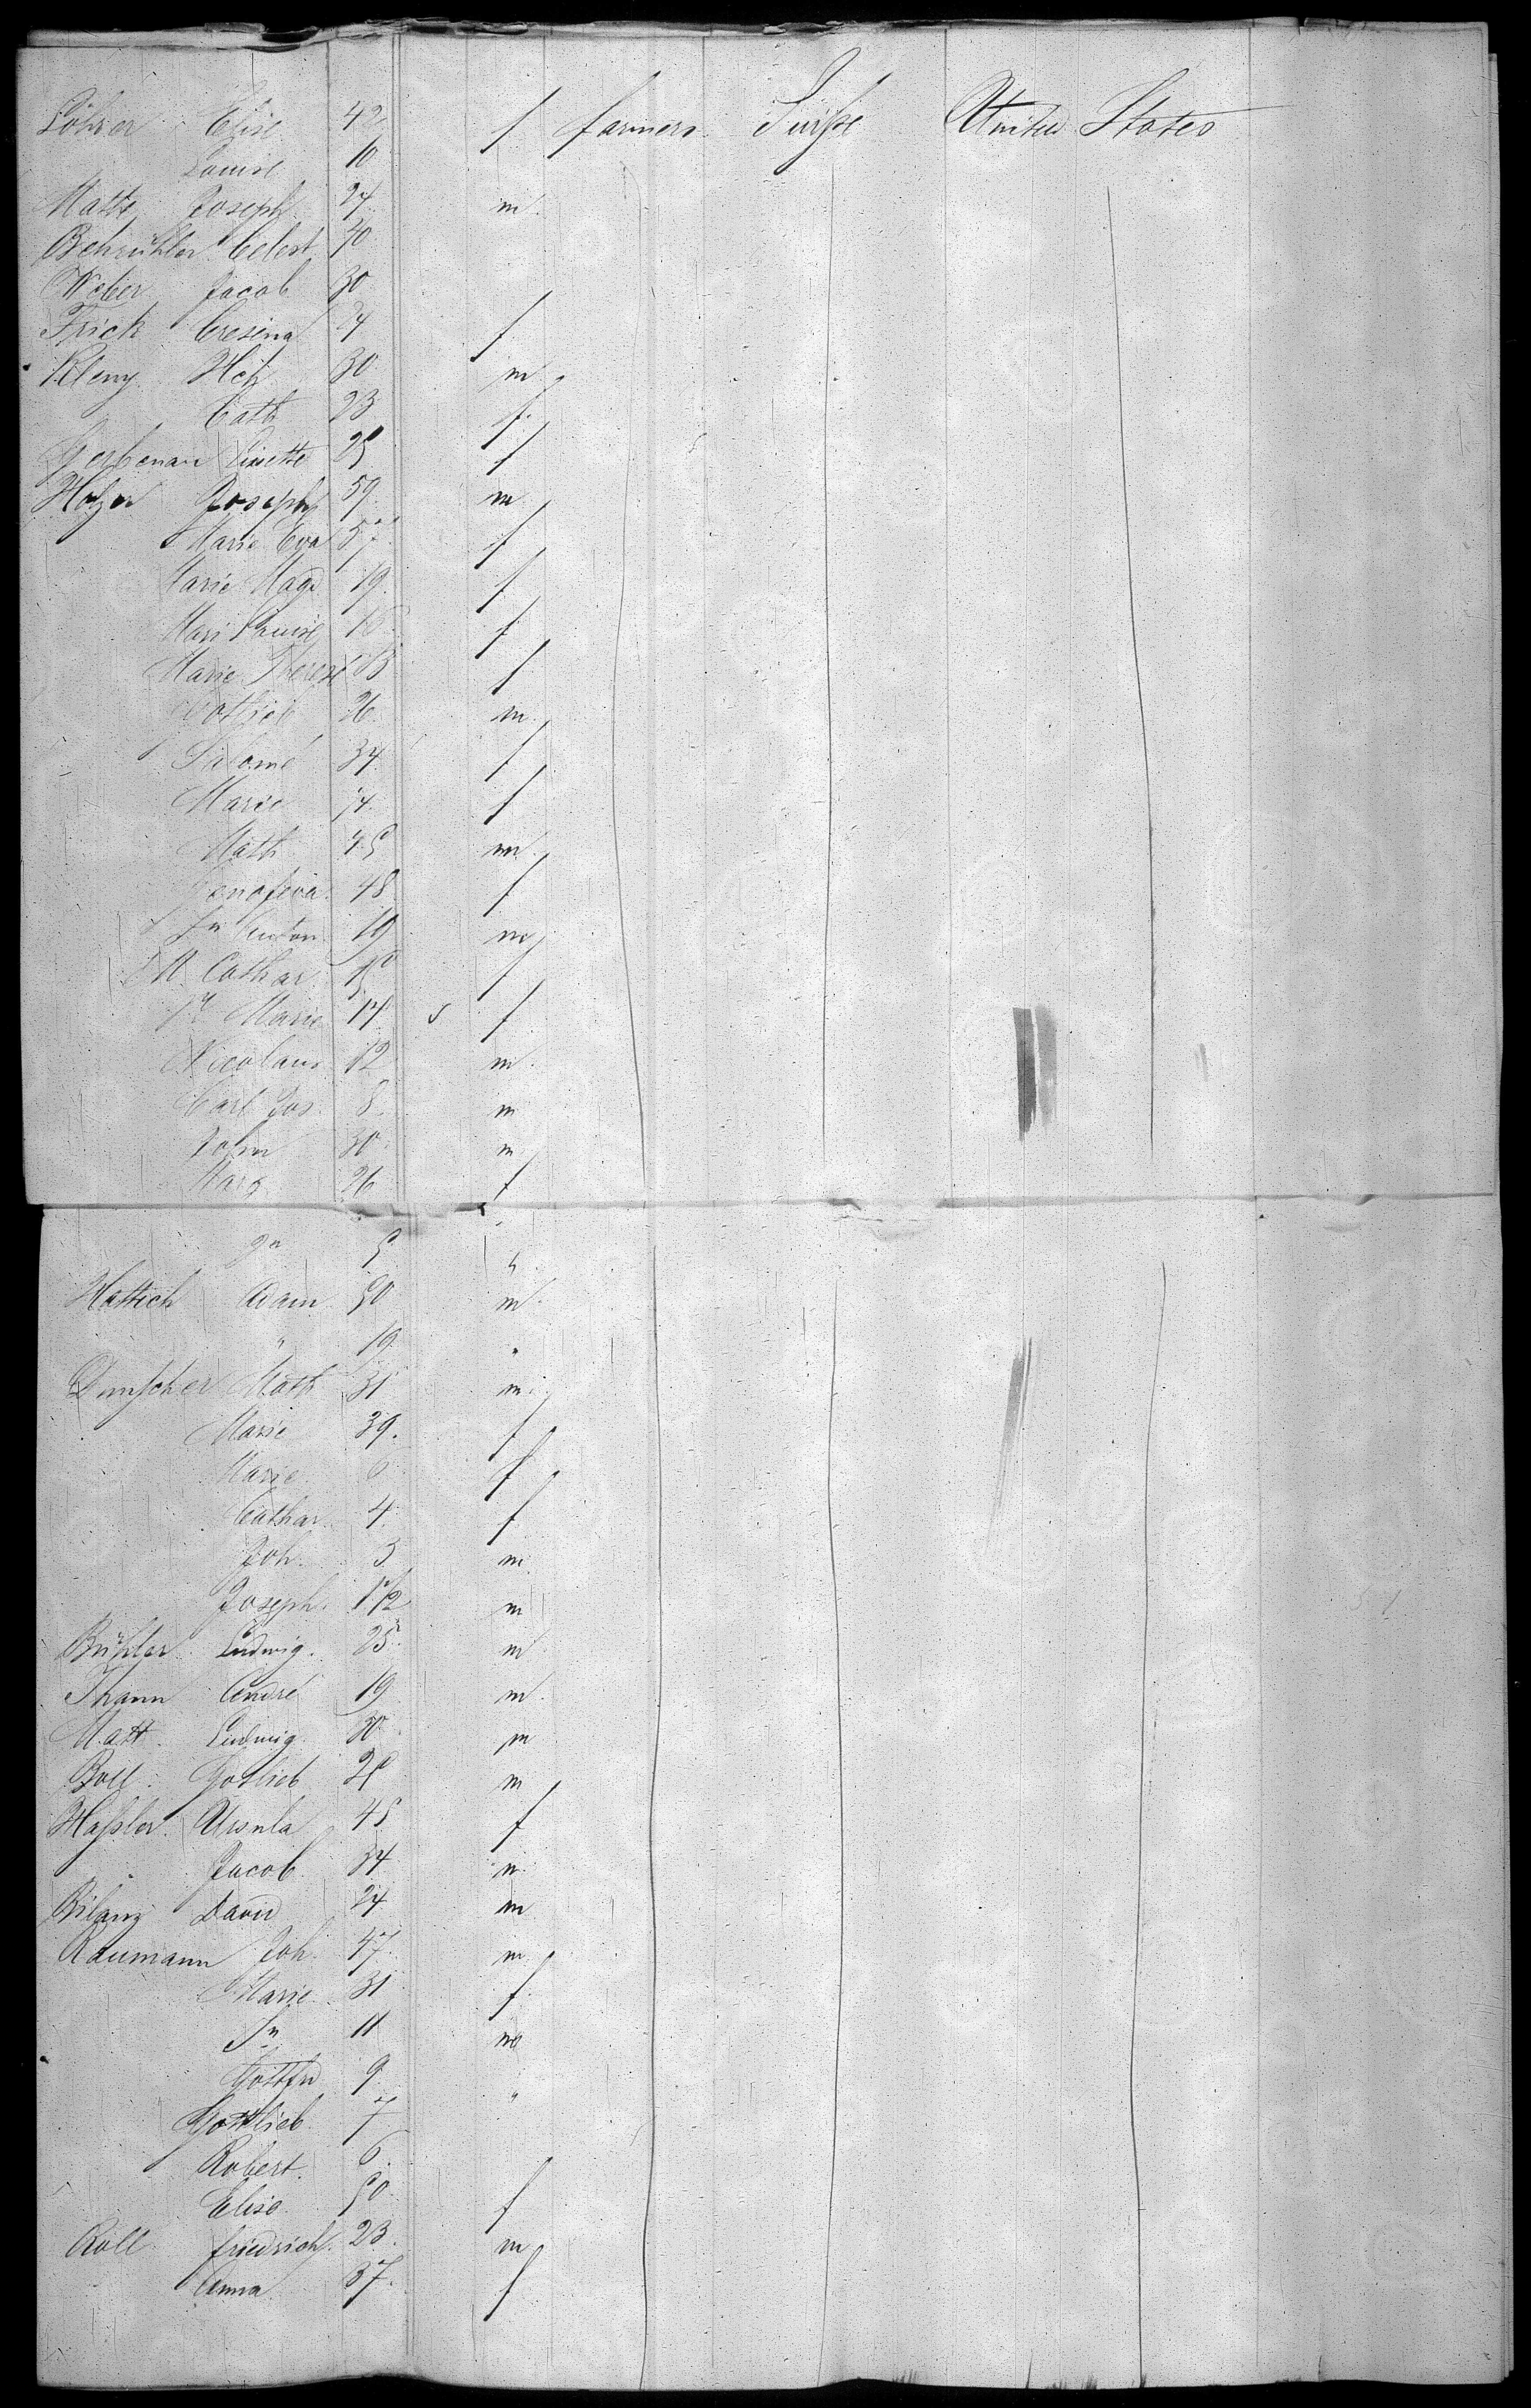 Löhrer Elise 42 f farmers Suiße United States
Louise 10
Matt Joseph 24 m.
Behrühler Celest 40
Weber Jacob 30
Frick Cresena 24 f
Kleny Hch 30 m
Cath 23 f.
Lisette 25 f
Holzer Joseph 59. m
Marie Eva 57 f
Marie Magd 19. f
Mari Louise 16 f
Marie Therese 13 f
Gottlieb 26 m.
Salomé 34 f
Marie 14. f
Math 45 m.
Genofeva. 48 f
Jn Anton 19 m
M. Cathar 15 f
Marie 14 f
Nicolaus 12 m.
Carl Jos. 8. m
John 30 m
Marg 26 f
Jn 5 "
Hattich Adam 50 m.
" 19 "
Dunscher Math 31 m.
Marie 39. f
Marie 6 f
Cathar 4. f
Joh. 3 m
Joseph. 1 1/2 m
Bühler Ludwig. 25. m
Thann André 19 m.
Matt. Ludwig. 30. m
Boll. Gotlieb 25 m
Haßler. Ursula 45 f
Jacob. 34 m.
Bilang David 24 m
Raumann Joh. 47. m.
Marie. 31 f
Jn 11 m
Gottfrd 9 "
Gottlieb. 7
Robert. 6.
Elise. 50 f
Roll friedrich. 23. m
Anna 37. f